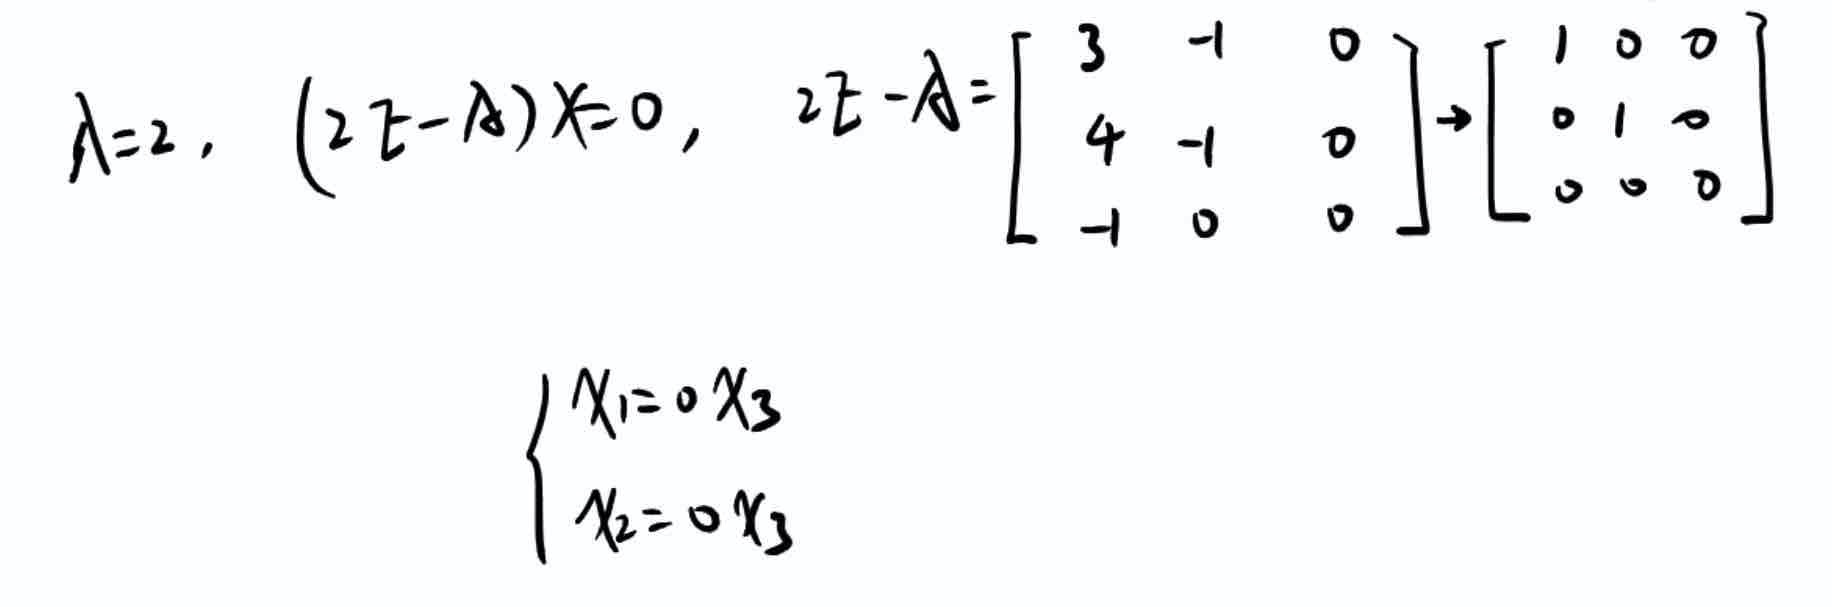 λ=2, (2E-A)X=0, 2E-A=[3 -1 0; 4 -1 0; -1 0 0]→[1 0 0; 0 1 0; 0 0 0]
{x₁=0x₃
x₂=0x₃